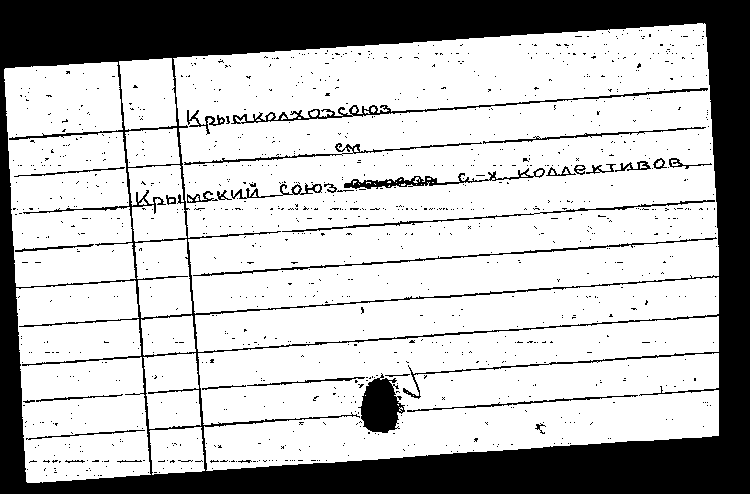 Крымколхозсоюз
см.
Крымский союз с-х коллективов.